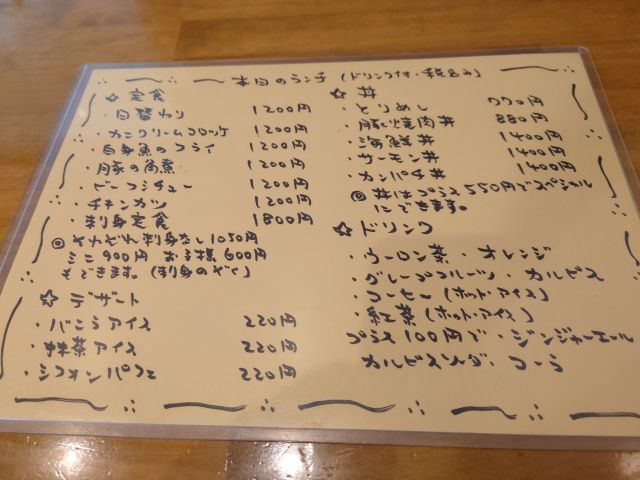 本日のランチ (ドリンク付・税込み)
☆ 定食
・日替わり 1200円
・カニクリームコロッケ 1200円
・白身魚のフライ 1200円
・豚の角煮 1200円
・ビーフシチュー 1200円
・チキンカツ 1200円
・刺身定食 1800円
◎ それぞれ刺身なし 1050円
ミニ 900円 お子様 600円
もできます。(刺身のぞく)
☆ デザート
・バニラアイス 220円
・抹茶アイス 220円
・シフォンパフェ 220円
☆ 丼
・とりめし 770円
・豚焼肉丼 880円
・海鮮丼 1400円
・サーモン丼 1400円
・カンパチ丼 1400円
◎ 丼はプラス550円でスペシャル
にできます。
☆ ドリンク
・ウーロン茶 ・オレンジ
・グレープフルーツ ・カルピス
・コーヒー (ホット・アイス)
・紅茶 (ホット・アイス)
プラス100円で ・ジンジャーエール
カルピスソーダ・コーラ